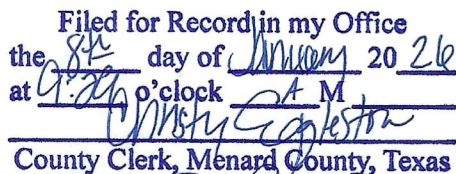 Filed for Record in my Office
the 8th day of January 20 26
at 9:29 o'clock A M
Christy Eggleston
County Clerk, Menard County, Texas